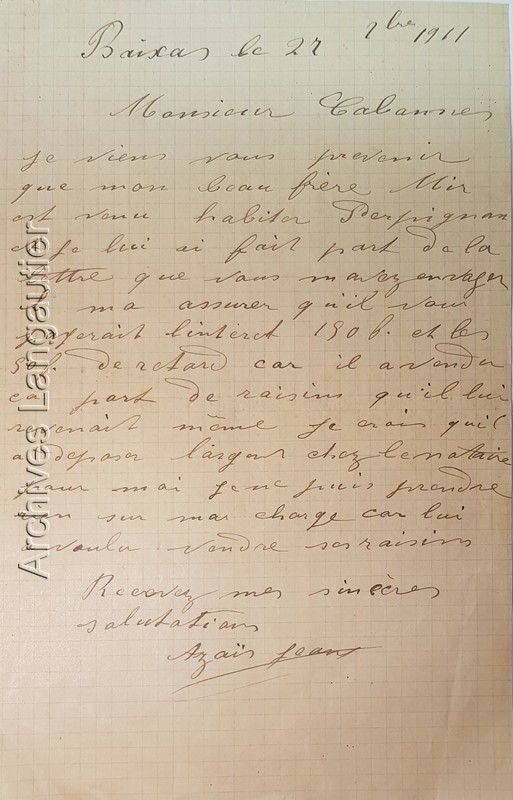 Baixas le 27 7bre 1911
Monsieur Cabannes
Je viens vous prevenir
que mon beau frère Mir
est venu habiter Perpignan
et Je lui ai fait part de la
lettre que vous mavez envoyer
ma assurer qu'il vous
payerait l'intéret 150 f. et les
50f. de retard car il a vendu
ca part de raisins qu'il lui
revenait même Je crois qu'il
a deposer l'argent chez le notaire
pour moi Je ne puis prendre
sur ma charge car lui
a voulu vendre ses raisins
Recevez mes sincères
salutations
Azaïs Jean
Archives Langautier